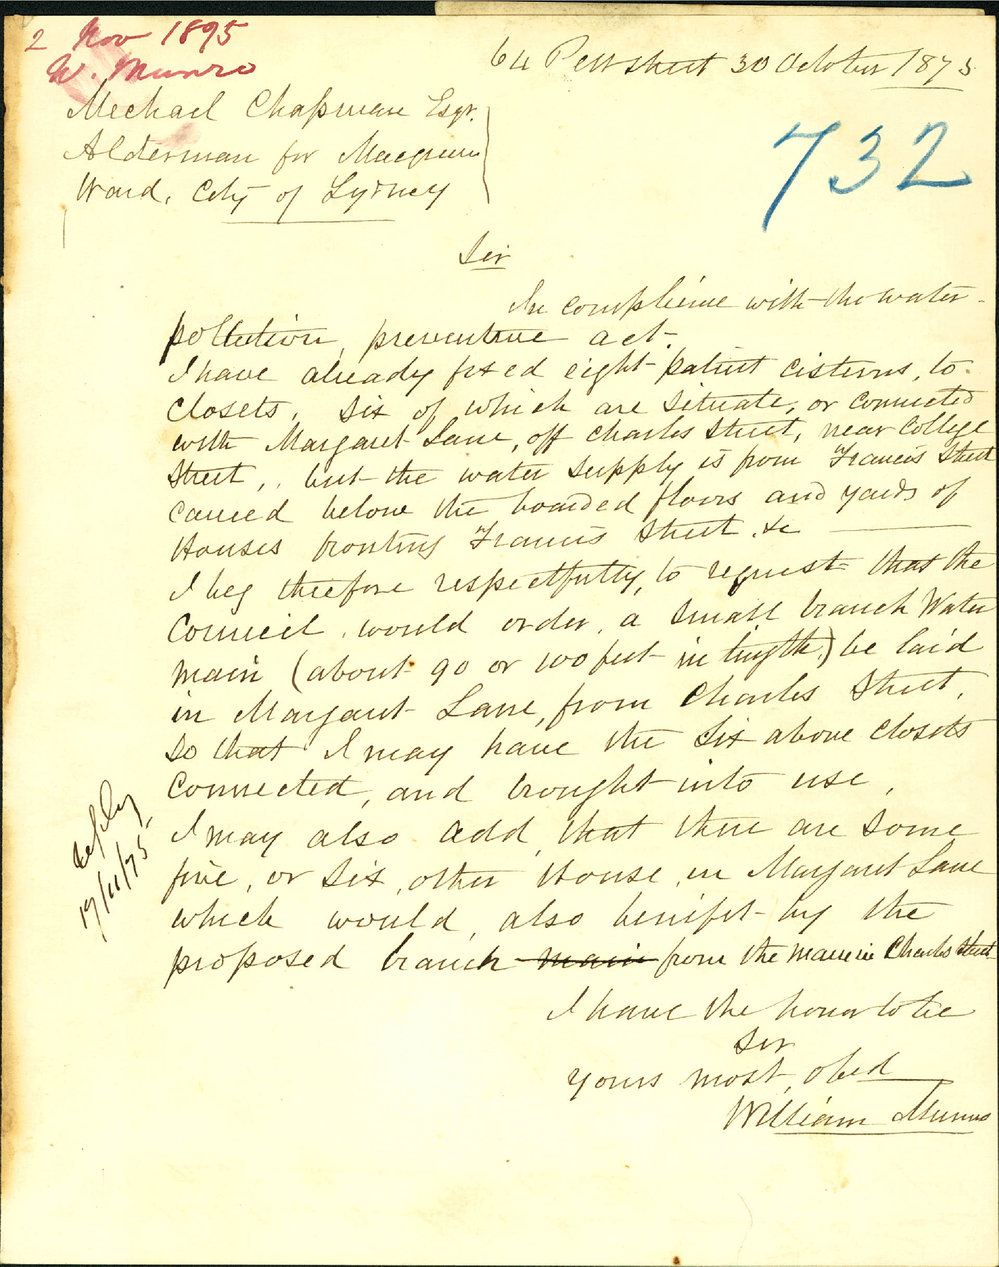 2 Nov 1895
W. Munro
64 Pitt street 30 October 1875
Mechael Chapman Esqr.
Alderman for Macquire
Ward, City of Sydney
732
Sir
In complience with the water
pollution, preventive act.
I have already fixed eight patent cisterns, to
closets, six of which are situate, or connected
with Margaret Lane, off Charles Street, near College
Street, but the water supply is from Francis Street
carried below the boarded floors and yards of
Houses fronting Francis Street &c
I beg therefore respectfully, to request that the
Council, would order, a small branch Water
main (about 90 or 100 feet in length) be laid
in Margaret Lane, from Charles Street,
so that I may have the six above closets
connected, and brought into use,
I may also add, that there are some
five, or six, other House, in Margaret Lane
which would, also benifit by the
proposed branch main from the main in Charles Street
reply
17/11/75
I have the honor to be
Sir
yours most, obed
William Munro